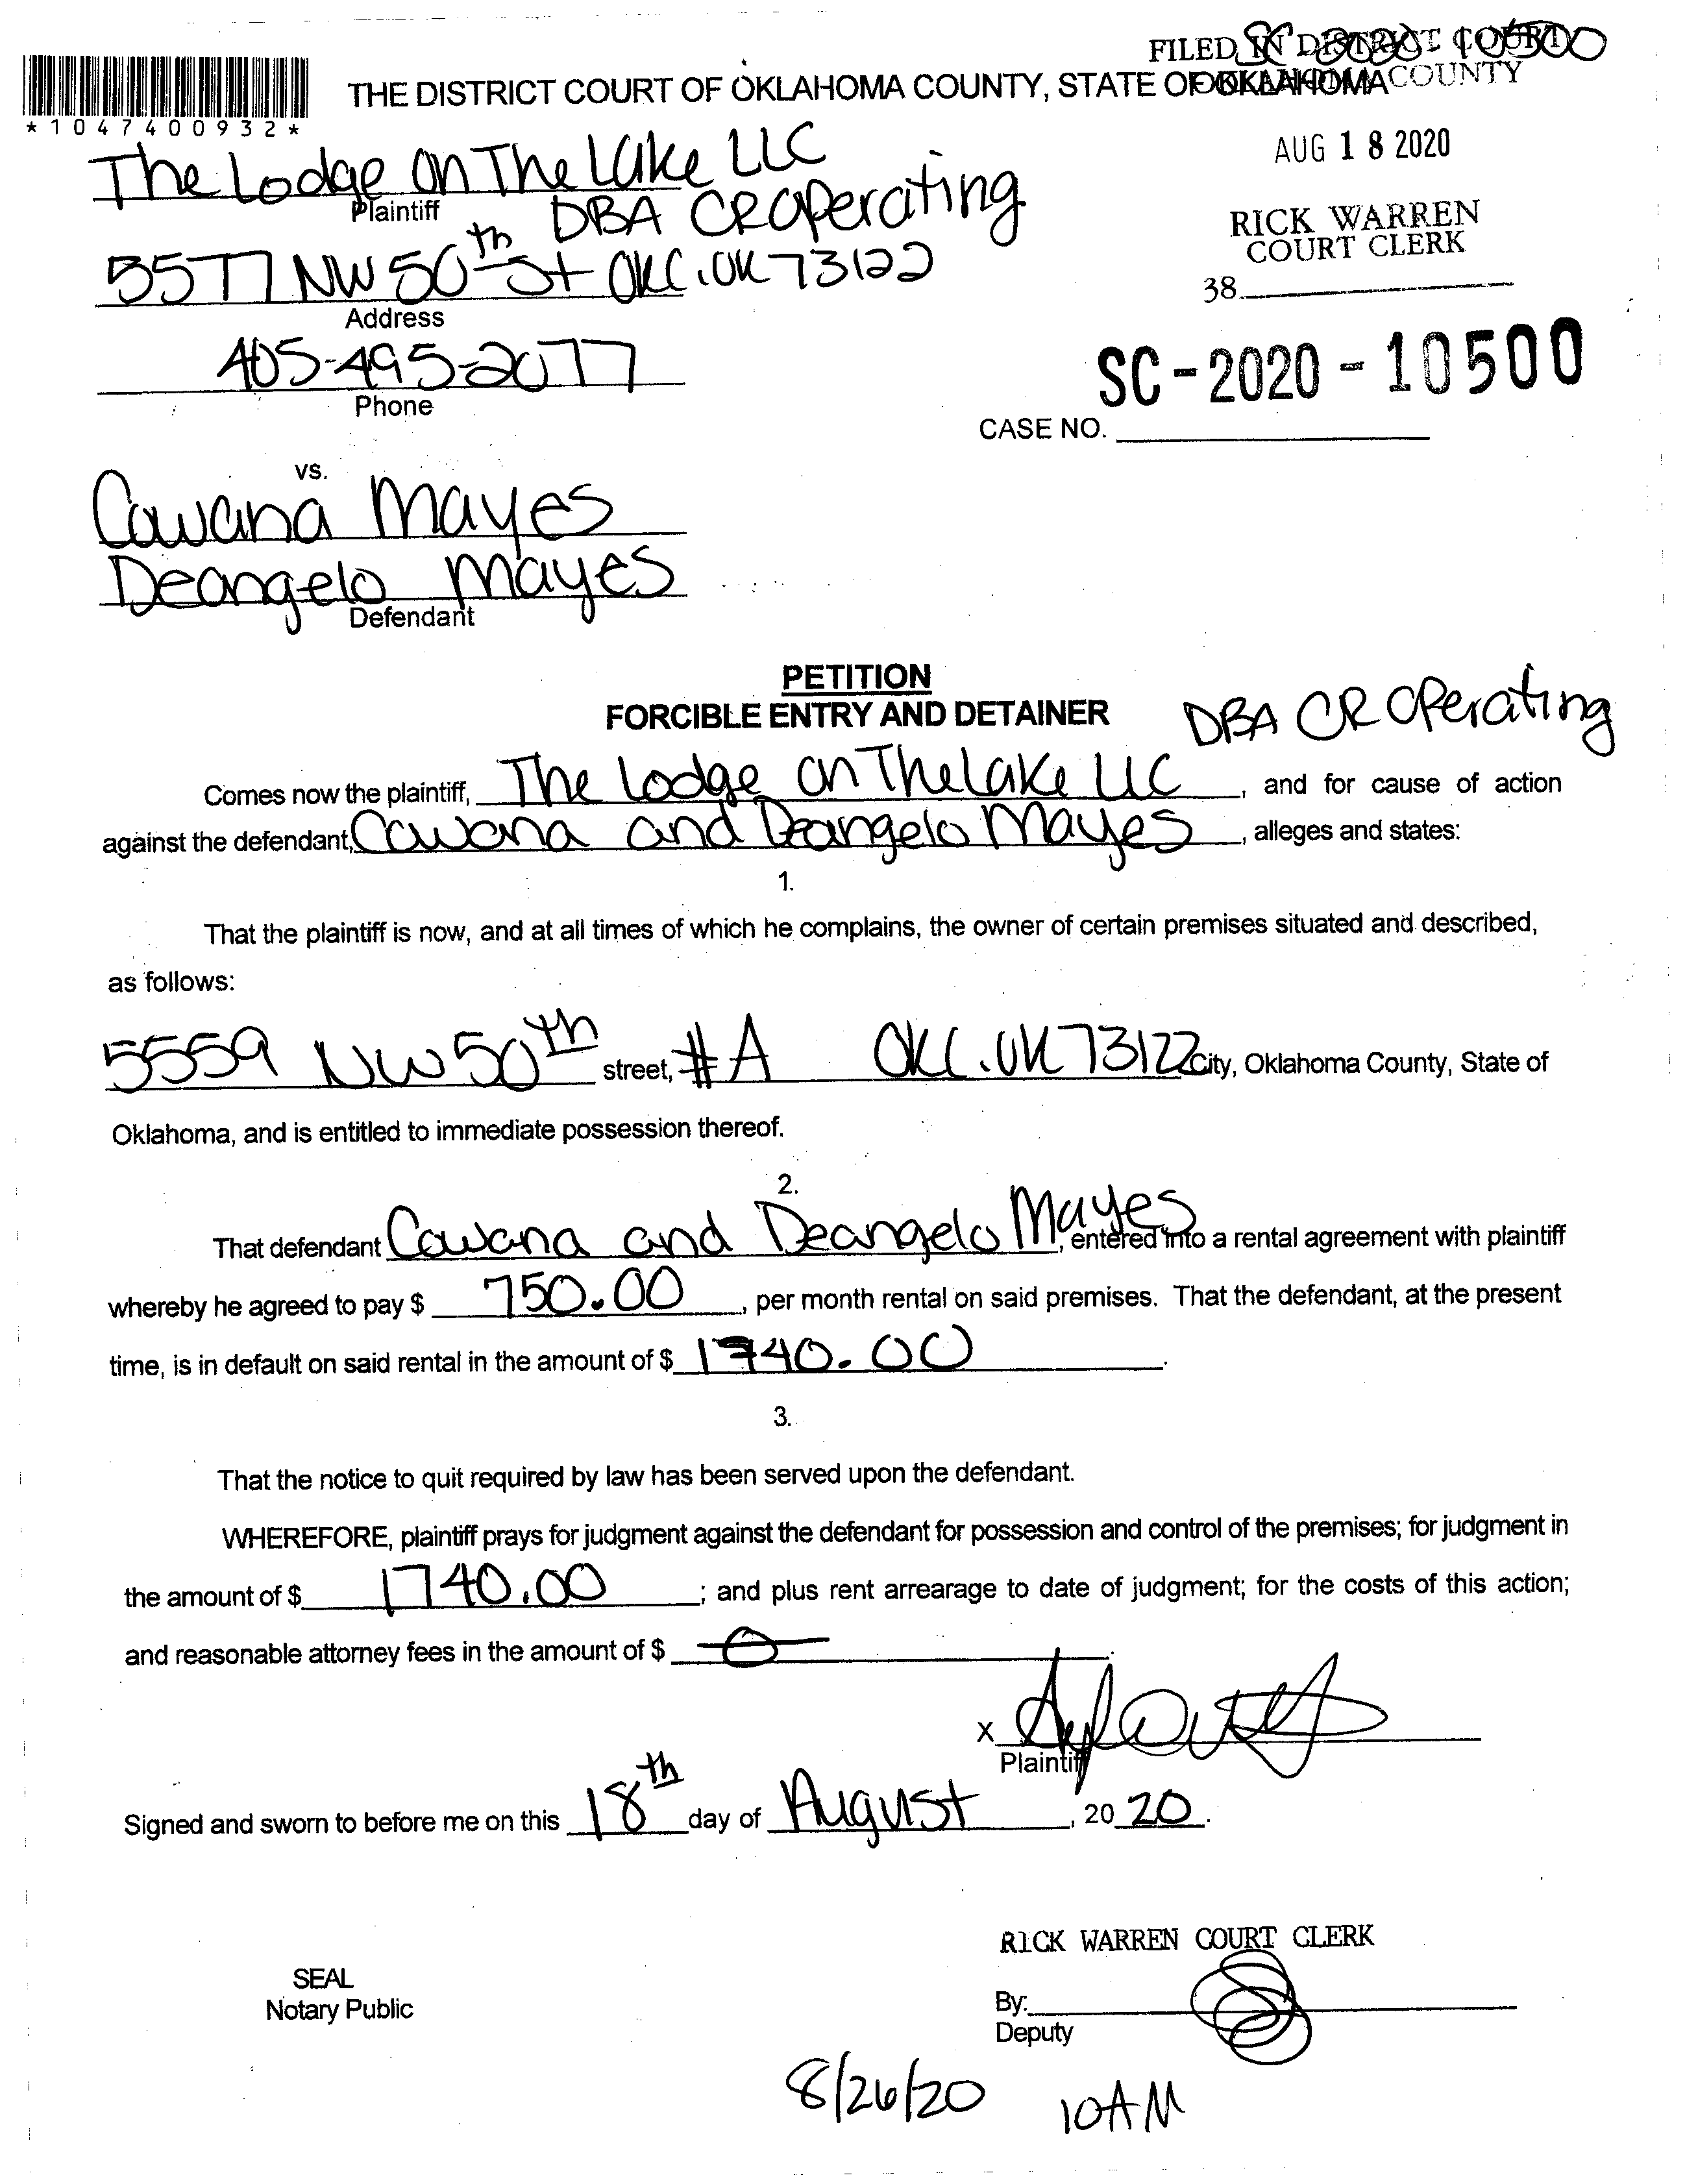 FILED IN DISTRICT COURT
SC 2020 10500
THE DISTRICT COURT OF OKLAHOMA COUNTY, STATE OF OKLAHOMA
OKLAHOMA COUNTY
*1047400932*
AUG 18 2020
The Lodge on The Lake LLC
Plaintiff
DBA CR Operating
RICK WARREN
COURT CLERK
5577 NW 50th St OKC. OK 73122
Address
38.
405-495-2077
Phone
SC-2020-10500
CASE NO.
vs.
Cawana Mayes
Deangelo Mayes
Defendant
PETITION
FORCIBLE ENTRY AND DETAINER
DBA CR Operating
Comes now the plaintiff, The Lodge on The Lake LLC, and for cause of action
against the defendant, Cawana and Deangelo Mayes, alleges and states:
1.
That the plaintiff is now, and at all times of which he complains, the owner of certain premises situated and described,
as follows:
5559 NW 50th street, #A OKC. OK 73122 City, Oklahoma County, State of
Oklahoma, and is entitled to immediate possession thereof.
2.
That defendant Cawana and Deangelo Mayes, entered into a rental agreement with plaintiff
whereby he agreed to pay $ 750.00, per month rental on said premises. That the defendant, at the present
time, is in default on said rental in the amount of $ 1740.00.
3.
That the notice to quit required by law has been served upon the defendant.
WHEREFORE, plaintiff prays for judgment against the defendant for possession and control of the premises; for judgment in
the amount of $ 1740.00; and plus rent arrearage to date of judgment; for the costs of this action;
and reasonable attorney fees in the amount of $ 0.
X
Plaintiff
Signed and sworn to before me on this 18th day of August, 2020.
RICK WARREN COURT CLERK
SEAL
Notary Public
By:
Deputy
8/26/20 10AM